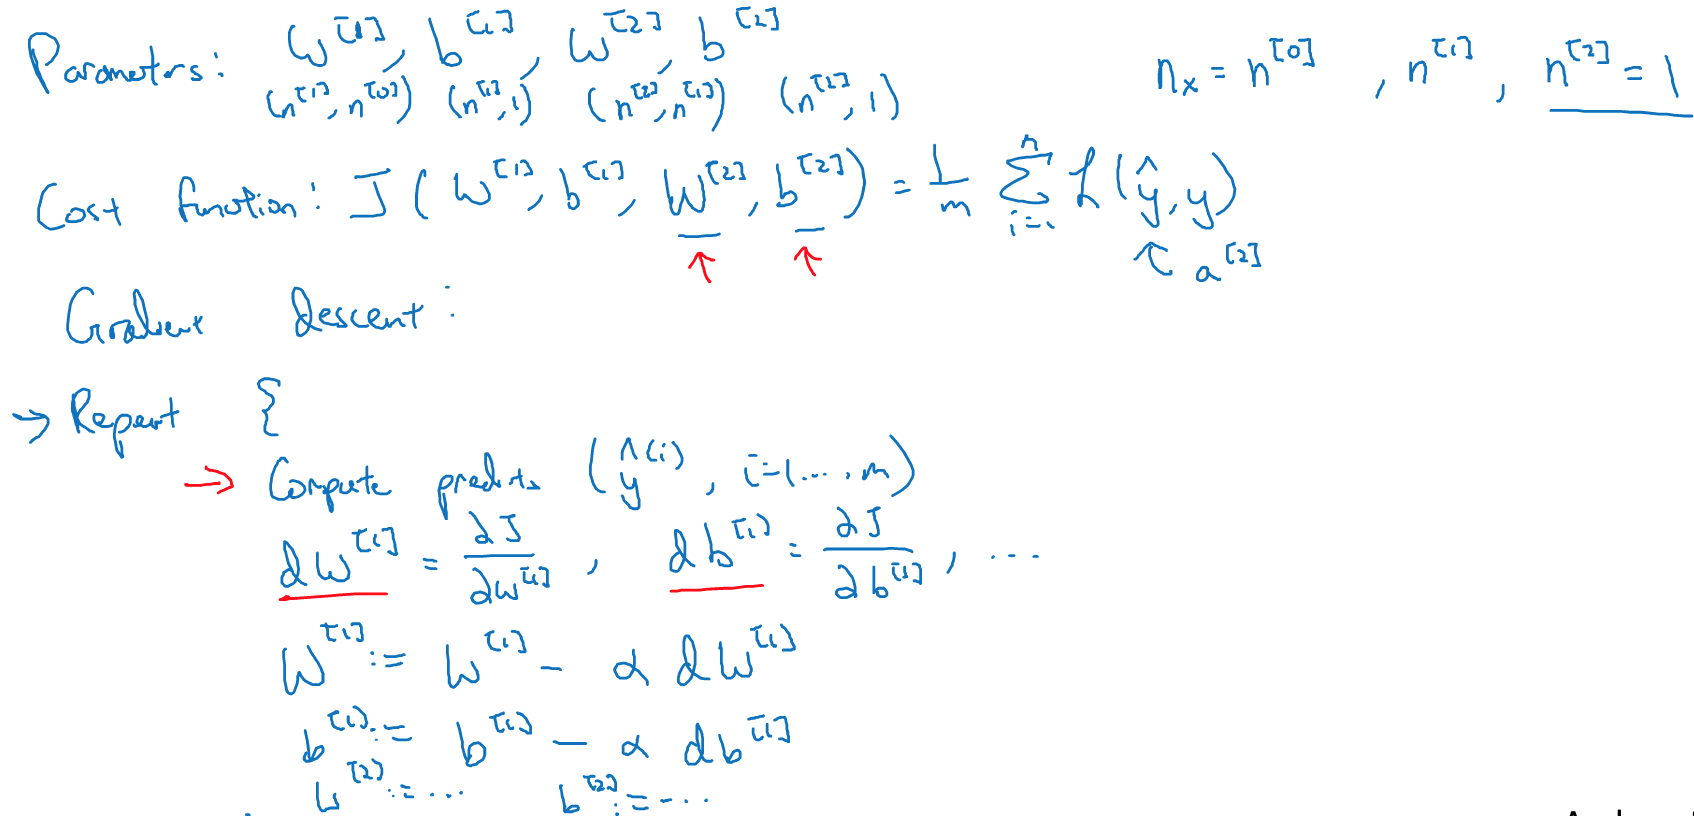 Parameters: W^[1], b^[1], W^[2], b^[2]    n_x = n^[0], n^[1], n^[2] = 1
(n^[1], n^[0]) (n^[1], 1) (n^[2], n^[1]) (n^[2], 1)
Cost function: J(W^[1], b^[1], W^[2], b^[2]) = 1/m ∑_{i=1}^{n} ℒ(ŷ, y)
↑ ↑ ↑ a^[2]
Gradient descent:
→ Repeat {
→ Compute predicts (ŷ^(i), i=1...,m)
dW^[1] = ∂J/∂W^[1], db^[1] = ∂J/∂b^[1], ...
W^[1] := W^[1] - α dW^[1]
b^[1] := b^[1] - α db^[1]
W^[2] := ... b^[2] := ...